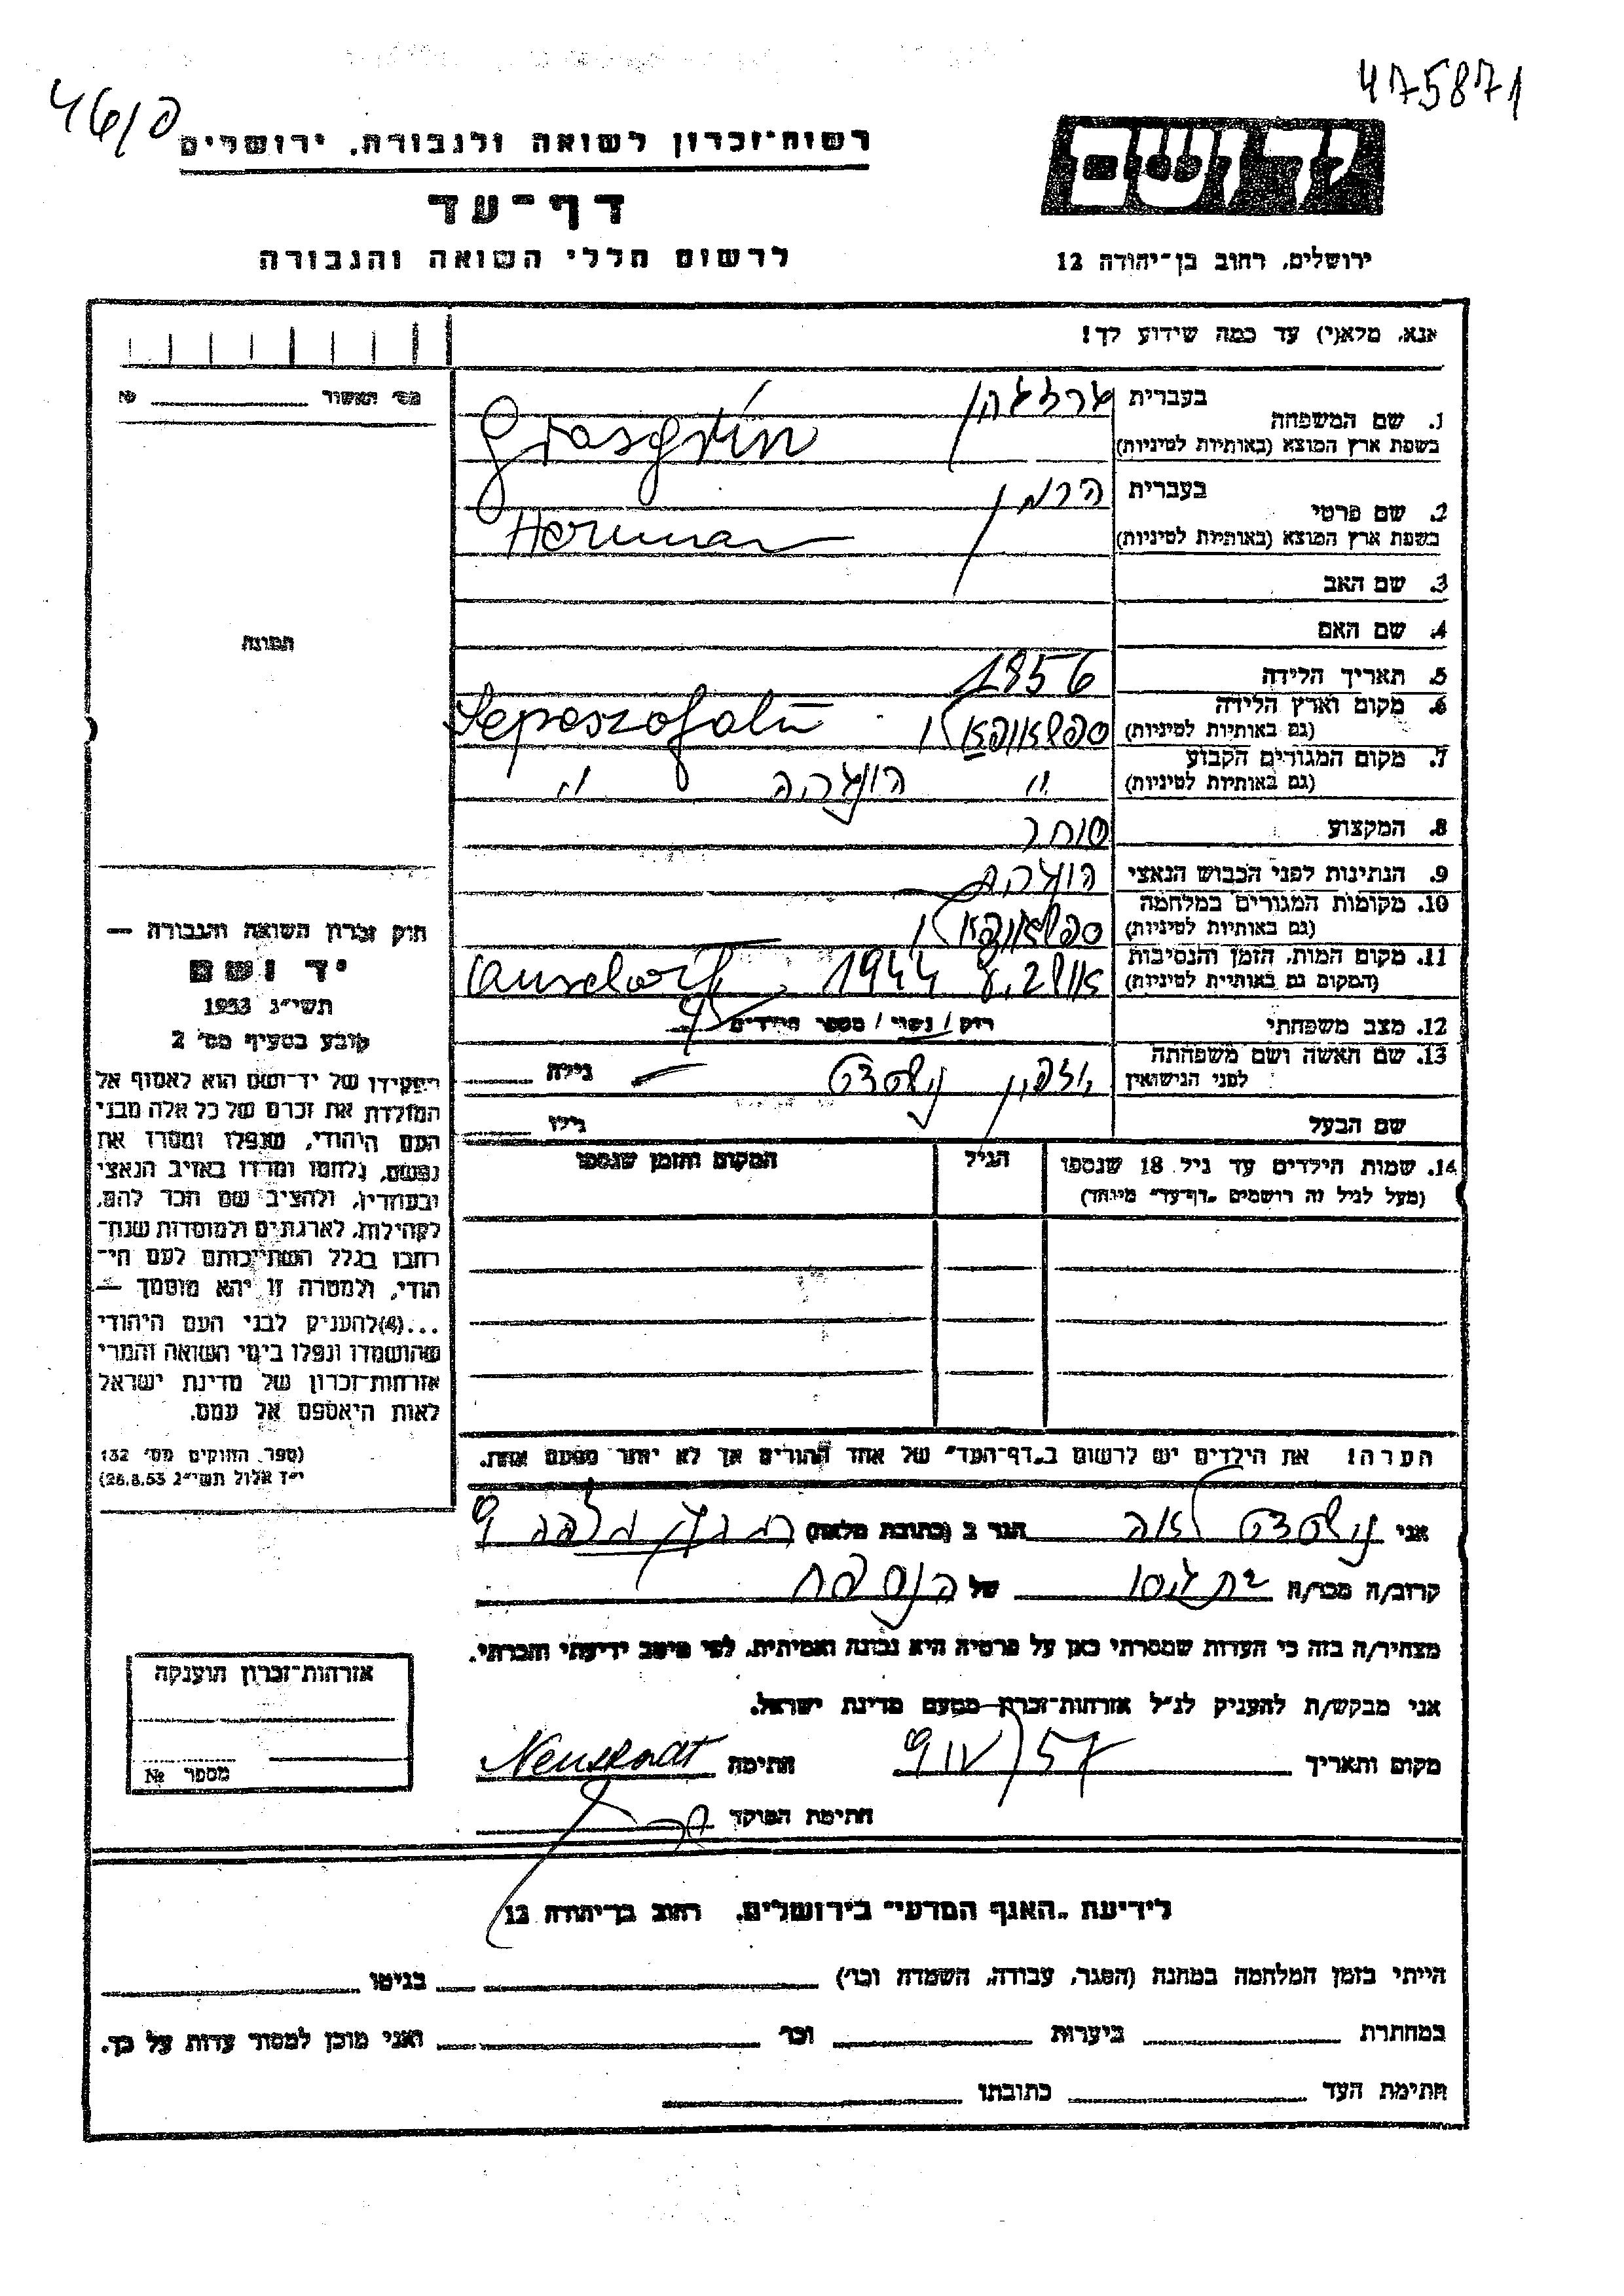 475871
46/פ
רשות-זכרון לשואה ולגבורה, ירושלים
דף-עד
לרשום חללי השואה והגבורה
יד ושם
ירושלים, רחוב בן-יהודה 12
אנא, מלא(י) עד כמה שידוע לך!
מס' האשור №
תמונה
1. שם המשפחה
בעברית
בשפת ארץ המוצא (באותיות לטיניות) Grasgrün
2. שם פרטי
בעברית הרמן
בשפת ארץ המוצא (באותיות לטיניות) Herman
3. שם האב
4. שם האם
5. תאריך הלידה 1856
6. מקום וארץ הלידה
(גם באותיות לטיניות) Sepeszofalu
7. מקום המגורים הקבוע
(גם באותיות לטיניות) " הונגריה "
8. המקצוע סוחר
9. הנתינות לפני הכבוש הנאצי הונגרית
10. מקומות המגורים במלחמה
(גם באותיות לטיניות)
11. מקום המות, הזמן והנסיבות
(המקום גם באותיות לטיניות) 1944
12. מצב משפחתי רוק / נשוי / מספר הילדים 9
13. שם האשה ושם משפחתה
לפני הנישואין נישטדט גילה
שם הבעל גילו
14. שמות הילדים עד גיל 18 שנספו
(מעל לגיל זה רושמים "דף-עד" מיוחד)
הגיל
המקום והזמן שנספו
הערה! את הילדים יש לרשום ב"דף-העד" של אחד ההורים אך לא יותר מפעם אחת.
חוק זכרון השואה והגבורה —
יד ושם
תשי"ג 1953
קובע בסעיף מס' 2
תפקידו של יד-ושם הוא לאסוף אל
המולדת את זכרם של כל אלה מבני
העם היהודי, שנפלו ומסרו את
נפשם, נלחמו ומרדו באויב הנאצי
ובעוזריו, ולהציב שם וזכר להם,
לקהילות, לארגונים ולמוסדות שנח-
רבו בגלל השתייכותם לעם הי-
הודי, ולמטרה זו יהא מוסמך —
...(4)להעניק לבני העם היהודי
שהושמדו ונפלו בימי השואה והמרי
אזרחות-זכרון של מדינת ישראל
לאות היאספם אל עמם.
(ספר החוקים מס' 132
י"ז אלול תשי"ג 28.8.53)
אני נישטדט לאה הגר ב (כתובת מלאה)
קרוב/ה מכר/ה של
מצהיר/ה בזה כי העדות שמסרתי כאן על פרטיה היא נכונה ואמיתית, לפי מיטב ידיעתי והכרתי.
אני מבקש/ת להעניק לנ"ל אזרחות-זכרון מטעם מדינת ישראל.
מקום ותאריך 9 IV 57 חתימה Neustadt
חתימת הפוקד
אזרחות-זכרון הוענקה
מספר №
לידיעת "האגף המדעי" בירושלים, רחוב בן-יהודה 12
הייתי בזמן המלחמה במחנה (הסגר, עבודה, השמדה וכו') בגיטו
במחתרת ביערות וכו' ואני מוכן למסור עדות על כך.
חתימת העד כתובתו